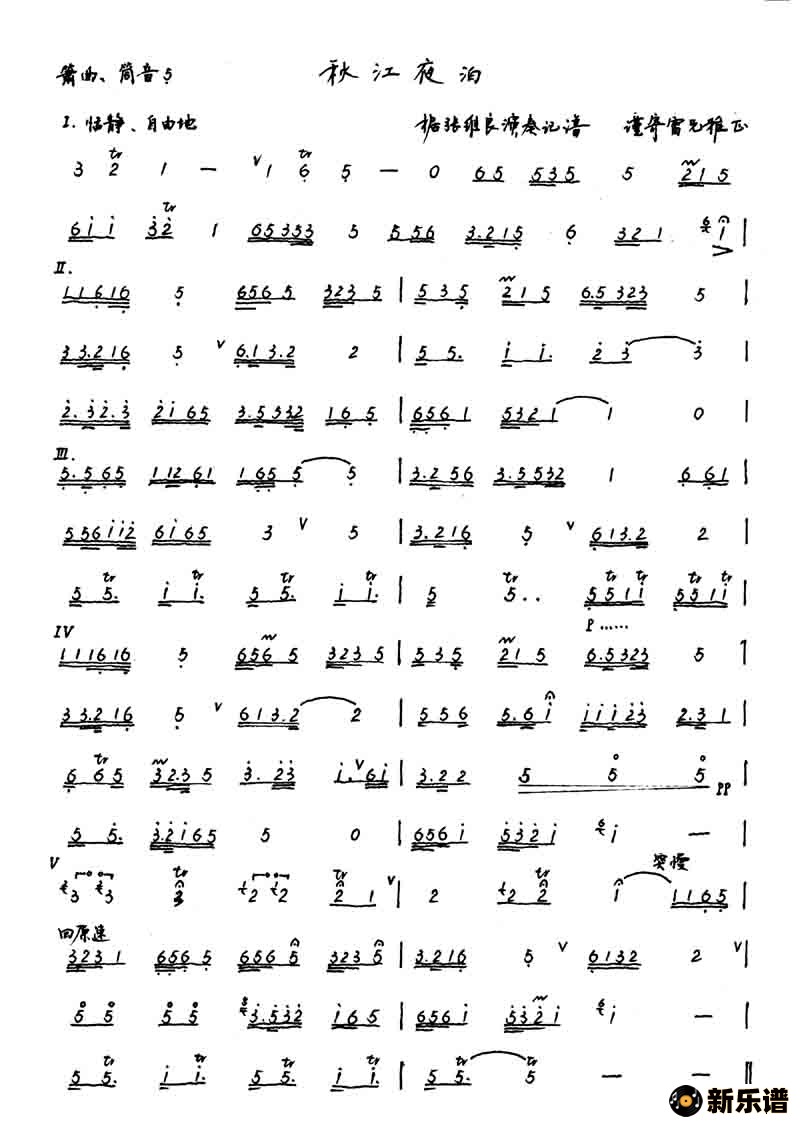 秋江夜泊
箫曲、筒音5̣
I. 恬静、自由地 据张维良演奏记谱 谨寄雷兄雅正
3 2 1 — V 1 6 5 — 0 65 535 5 215
tr tr
6ii 32 1 65353 5 556 3.215 6 321 i |
tr
II.
11616 5 6565 3235 | 535 215 6.5323 5 |
33.216 5 V 6.13.2 2 | 55. ii. 23 3 |
2.32.3 2i65 3.5332 165 | 6561 5321 1 0 |
III.
5.565 11261 1655 5 | 3.256 3.5532 1 661 |
556ii2 6i65 3 V 5 | 3.216 5 V 613.2 2 |
tr tr tr tr tr tr tr tr tr
55. ii. 55. ii. | 5 5.. 55ii 55ii |
IV P ......
111616 5 6565 3235 | 535 215 6.5323 5 |
33.216 5 V 613.2 2 | 556 5.6i iii23 2.31 |
tr V
665 32.35 3.23 i.6i | 3.22 5 5 5 pp |
55. 3.2i65 5 0 | 656i 532i i — |
V 突慢
3 3 3 2 2 2 1 V | 2 2 2 i 1165 |
tr tr tr
V 回原速
3231 6565 6565 3235 | 3.216 5 V 6132 2 V |
5 5 5 5 3.532 i65 | 656i 532i i — |
tr tr tr tr tr tr
55. ii. 55. ii. | 55. 5 — — ‖
新乐谱